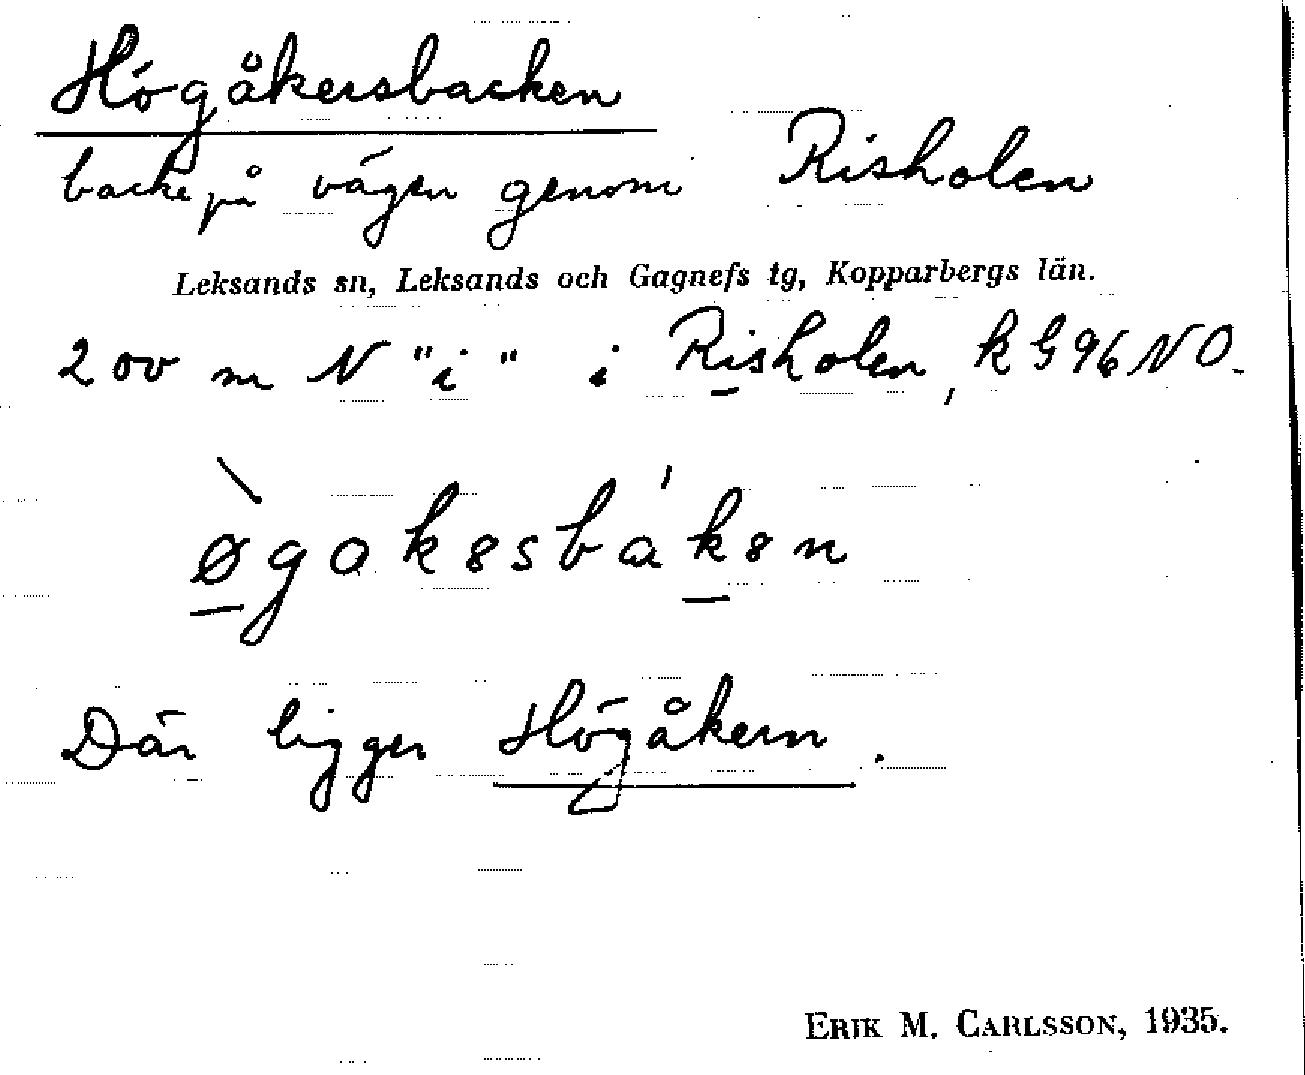 Högåkersbacken
backe på vägen genom Risholen
Leksands sn, Leksands och Gagnefs tg, Kopparbergs län.
200 m N "i" i Risholen, k G 96 NO.
øgakəsbakən
Där ligger Högåkern.
ERIK M. CARLSSON, 1935.